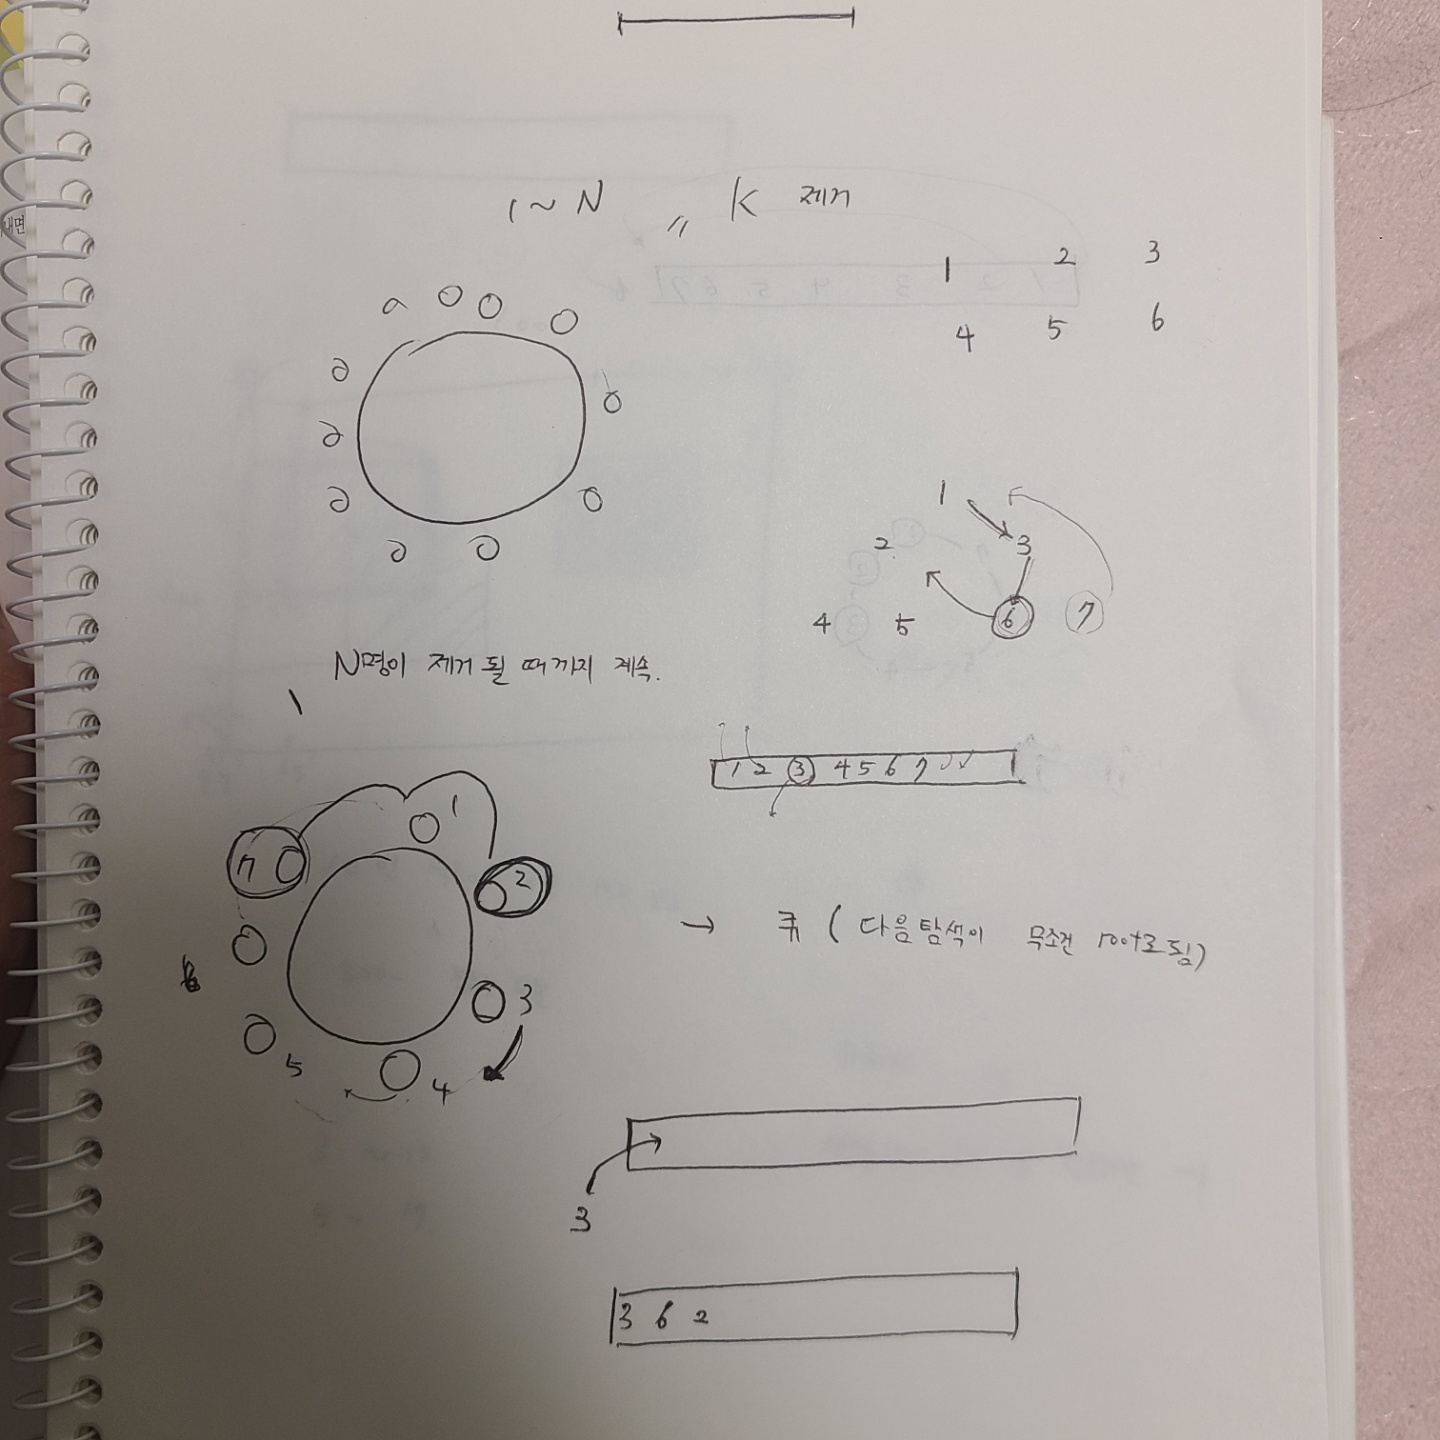 1 ~ N 〃 K 제거
1 2 3
4 5 6
1
2. 3
4 5 6 7
N명이 제거 될 때까지 계속.
1 2 3 4 5 6 7
1
7 2
3
6
5 4
→ 큐 ( 다음 탐색이 무조건 root로 됨)
3
3 6 2